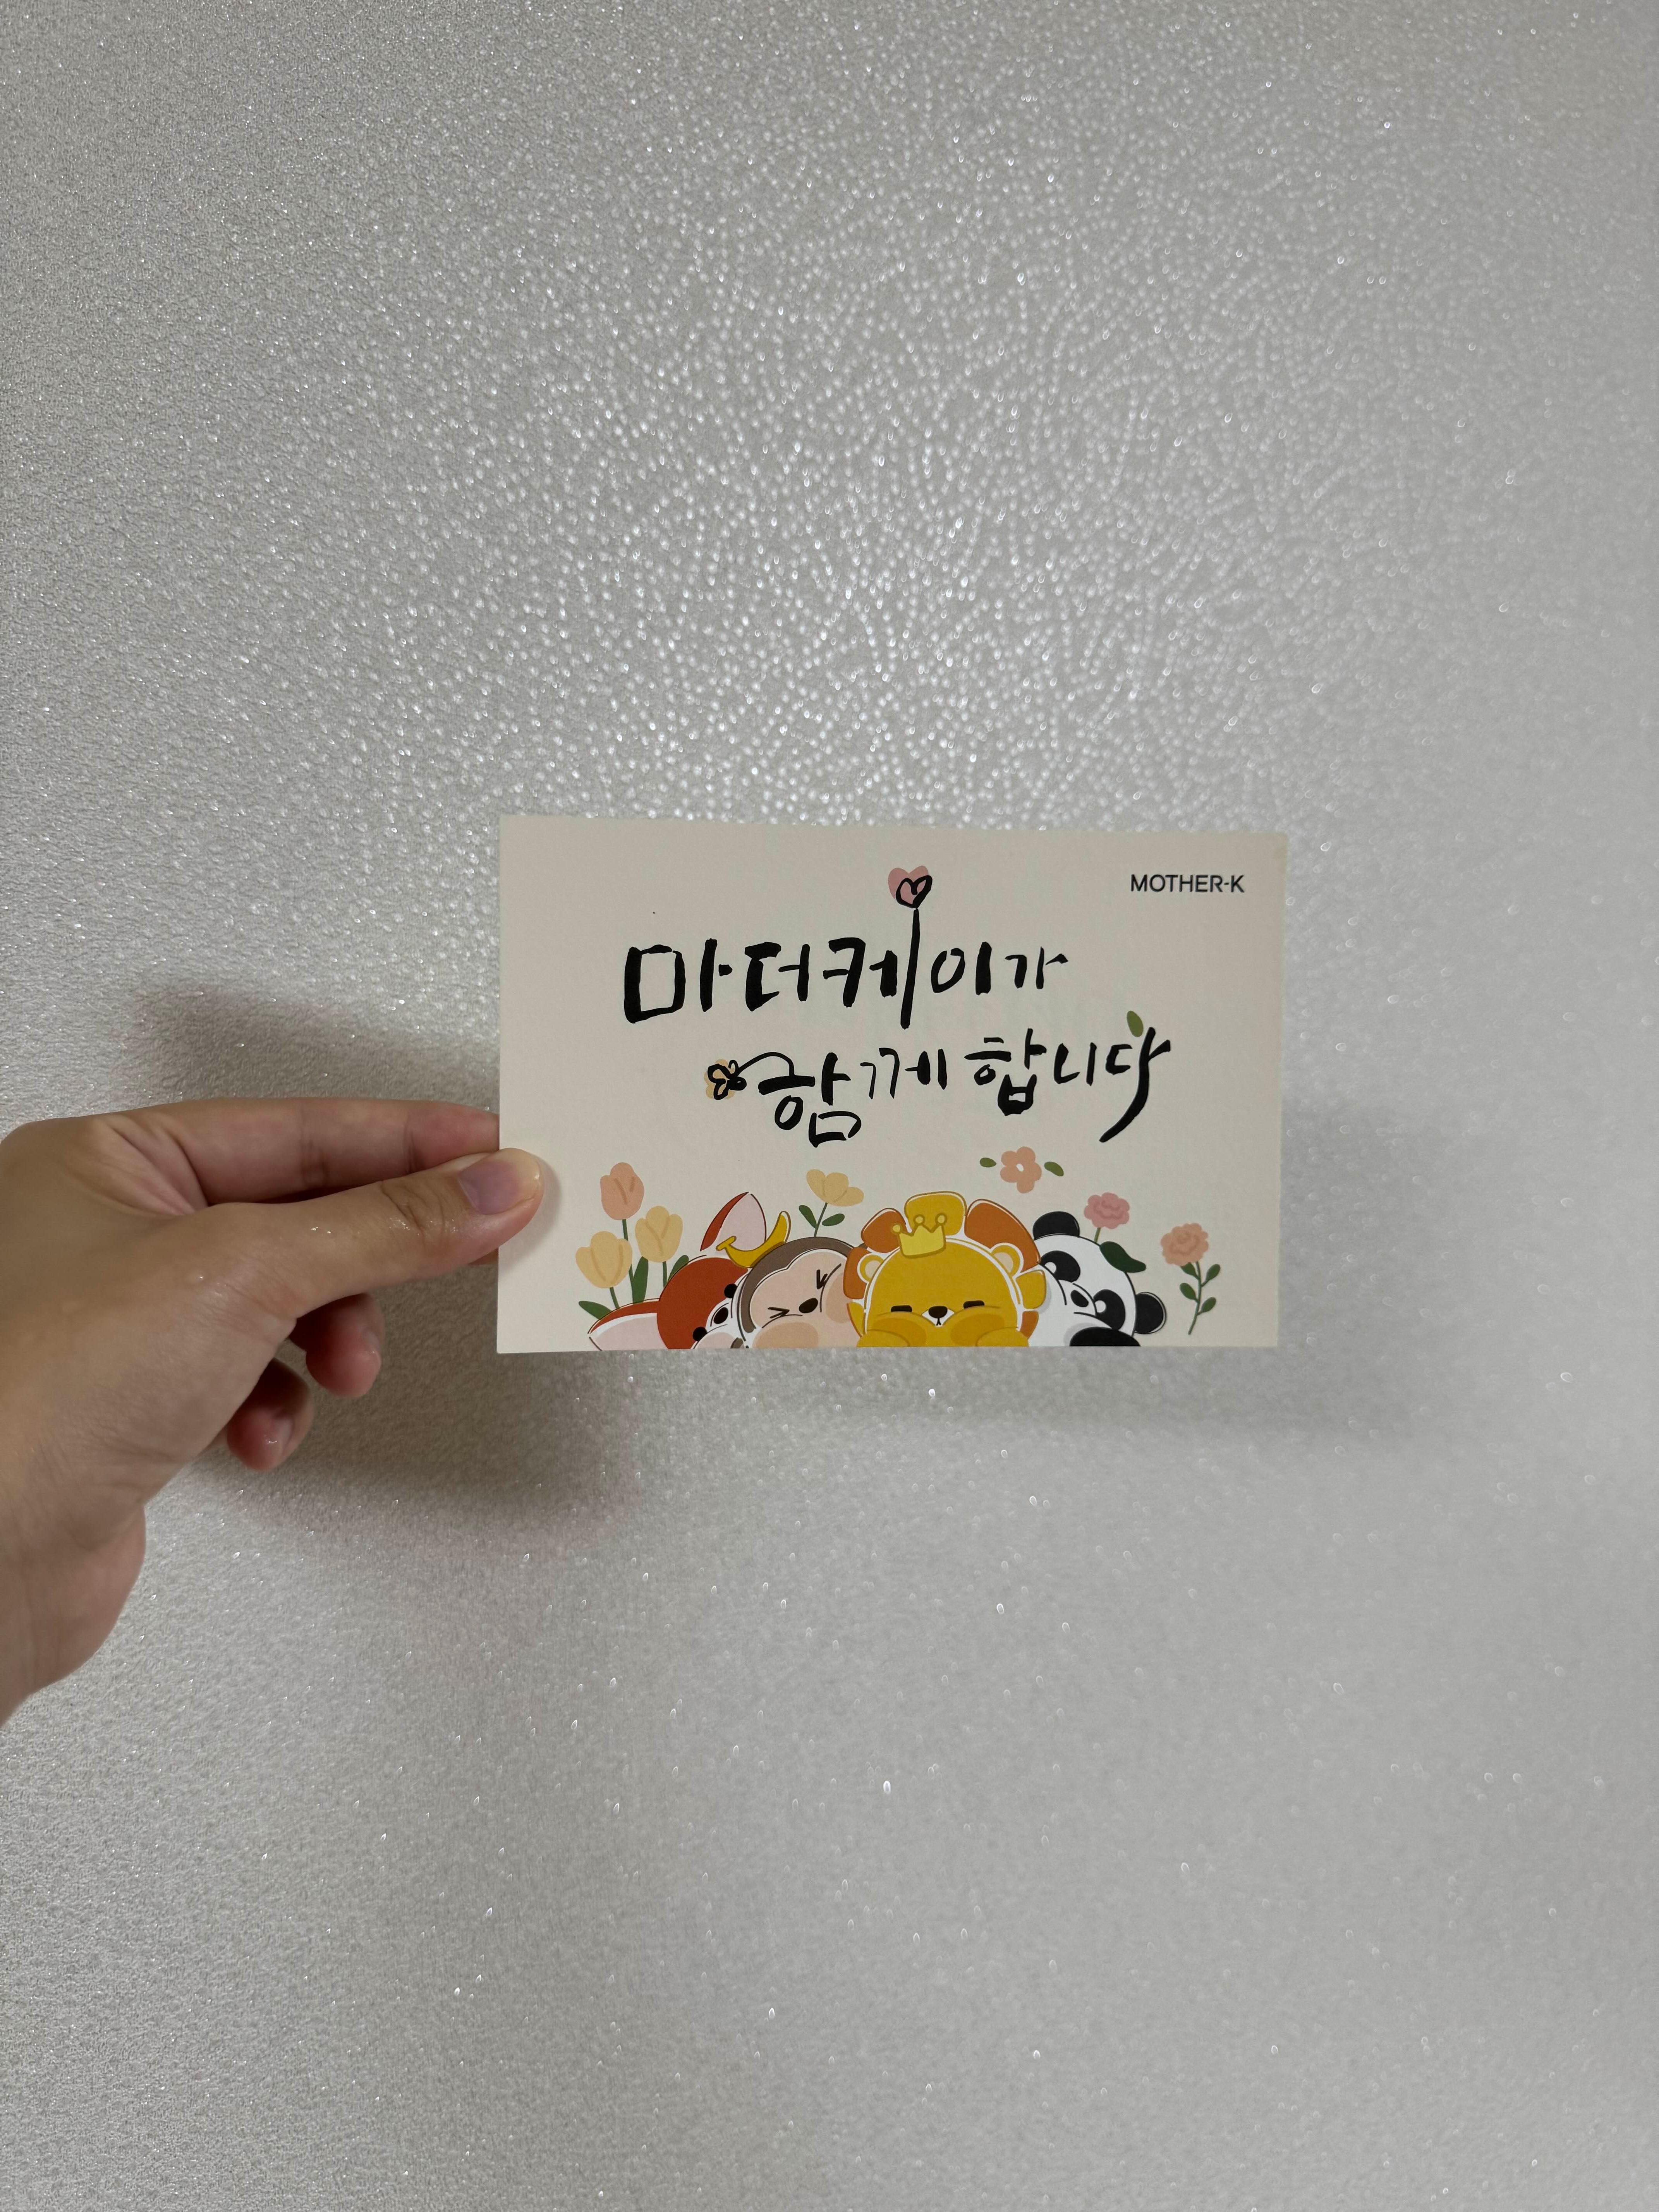 MOTHER-K
마더케이가
함께 합니다